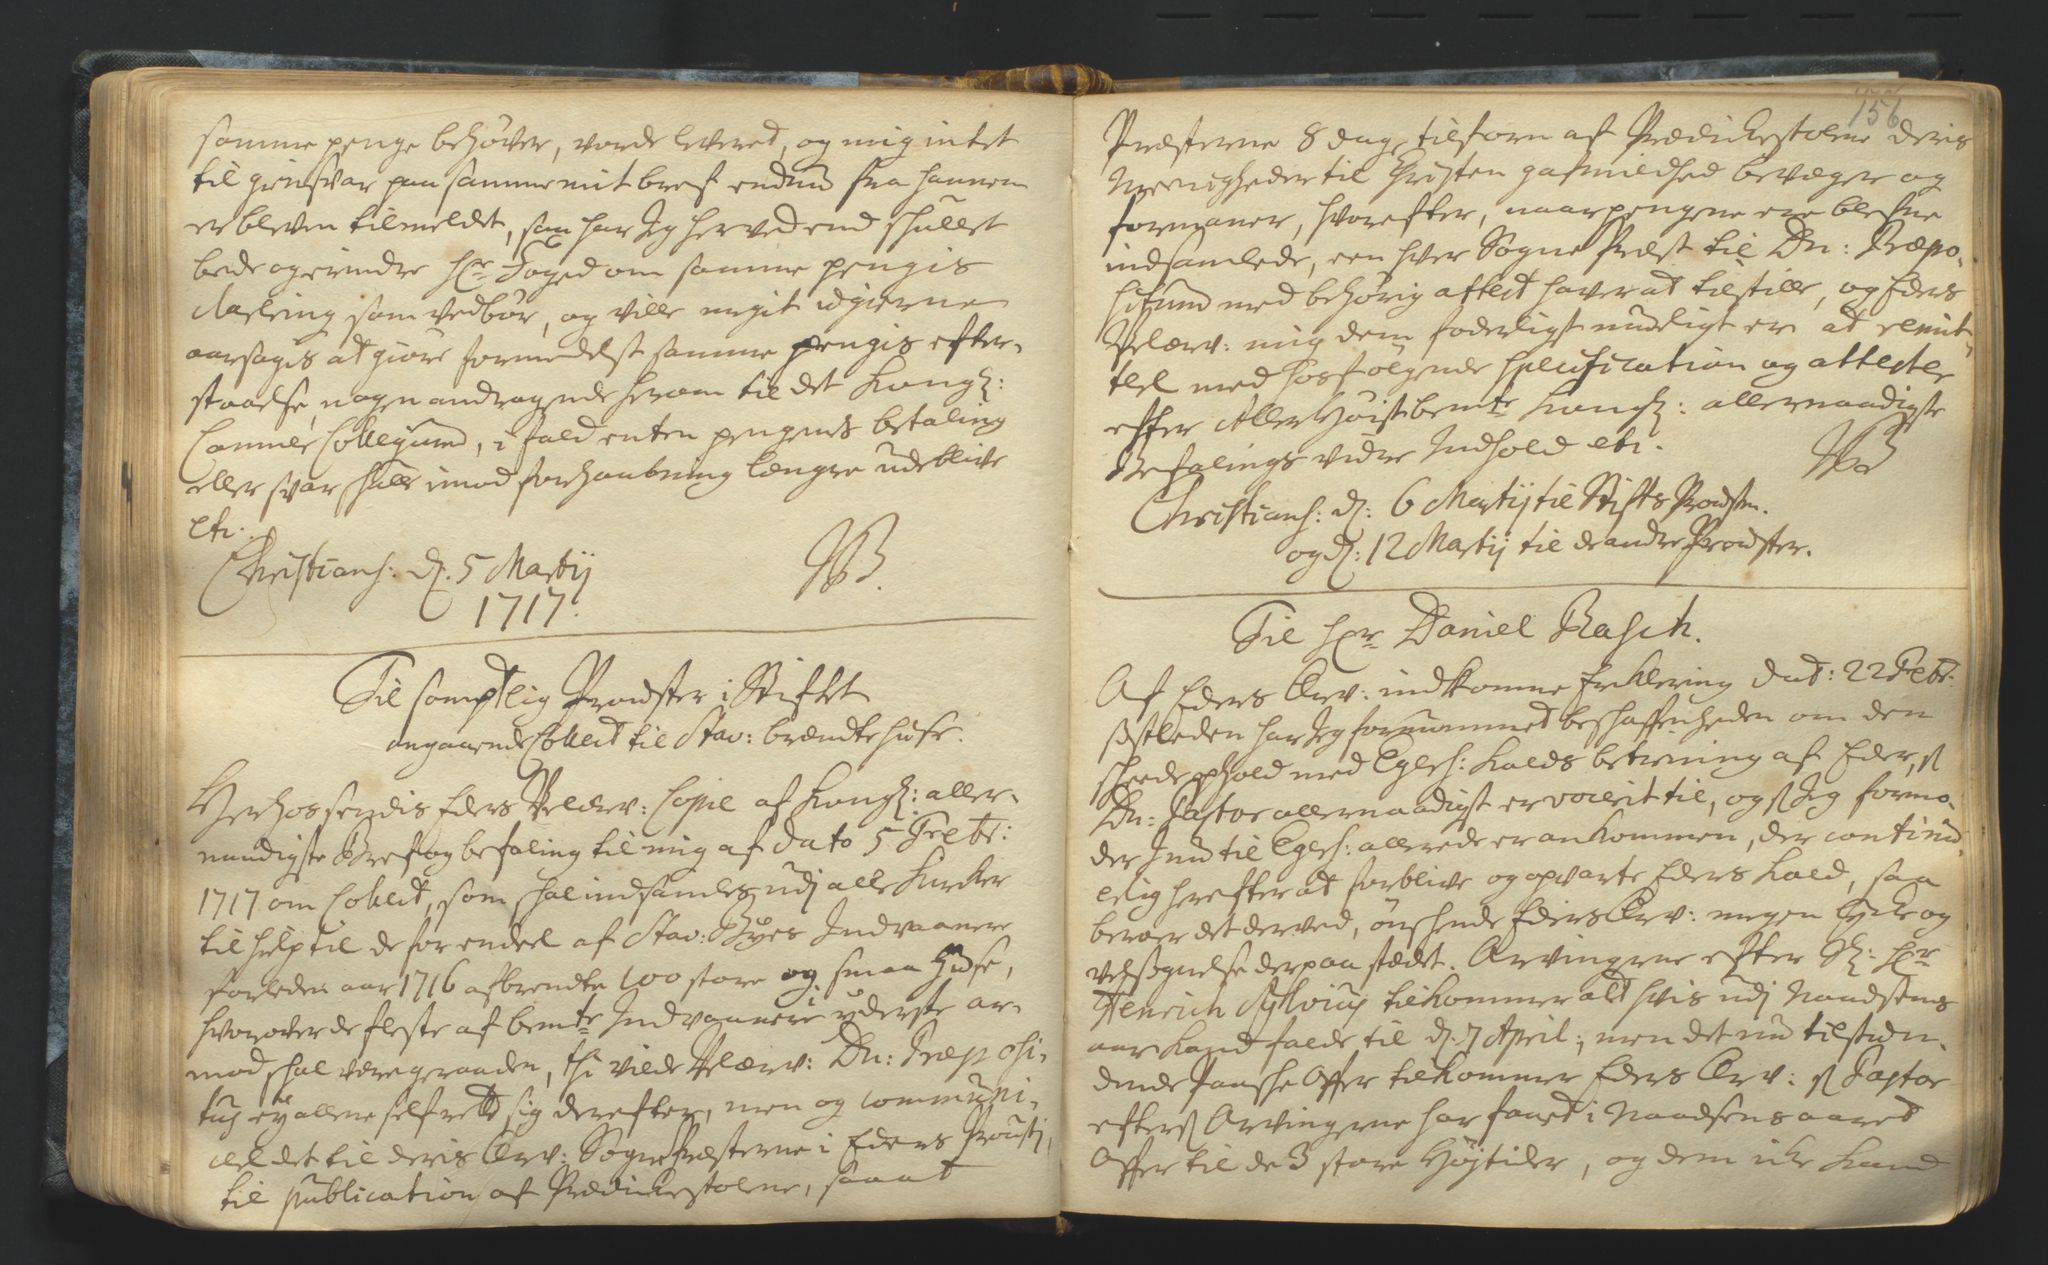 samme penge behøver, vorde leveret, og mig intet
til giensvar paa samme mit bref endnu fra hannem
er bleven tilmeldet, saa har Jeg herved end skullet
bede og erindre Hr Foged om samme pengis
som vedbør, og ville meget ugierne
aarsagis at giøre formedelst samme pengis efter-
staaelse, nogen andragende herom til det Kongl:
Cammer Collegium, i fald enten pengenes betaling
eller svar skulle imod forhaabning længre udeblive
etc.
Christians: d. 5 Martij
1717.
Til samptlig Provster i Stiftet
angaaende Collect til Stav: brændte huse.
Herhos sendis Eders Velærv: Copie af Kongl: aller-
naadigste Bref og befaling til mig af dato 5 Febr:
1717 om Collect, som skal indsamles udj alle Kircker
til hielp til de for en deel af Stav: Byes Indvaanere
forleden aar 1716 afbrendte 100 store og smaa Huse,
hvorover de fleste af bemte Indvaanere i yderste ar-
mod skal være geraaden, thi vilde Velærv: Dn: Præposi-
tus ey allene self rette sig derefter, men og communi-
cere det til deris Ærv: SognePræsterne i Eders Provstj,
til publication af Prædickestolene, saa at
156
Præsterne 8 dage tilforn af Prædickestolene deris
Meenigheder til Christen gafmildhed bevæger og
formaner, hvorefter, naar pengene ere blefne
indsamlede, een hver Sogne Præst til Dn: Præpo-
situm med behørig attest haver at tilstille, og Eders
Velærv: mig dem foderligst mueligt er at remit-
tere med hosfølgende specification og attester
efter Aller Høistbemte Kongl: allernaadigste
Befalings vidre Indhold etc.
Christians: d: 6 Martij til Stifts Provsten.
og d: 12 Martij til de andre Provster.
Til Hr Daniel Rasch.
Af Eders Ærv: indkomne Erklering dat: 22 Febr:
sistleden har Jeg fornummet beskaffenheden om den
skeede ophold med Egers: Kalds betiening af Eder, s
Dn: Pastor allernaadigst er voceret til, og s Jeg formo-
der J nu til Egers: allerede er ankommen, der continu-
erlig herefter at forblive og opvarte Eders Kald, saa
beroer det derved, ønskende Eders Ærv: megen lycke og
velsignelse der paa stædet. Arvingerne efter Sl: Hr
Henrich Sylvius tilkommer alt hvis udj Naadsens
aar kand falde til d: 7 April:, men det nu tilstun-
dende Paaske Offer tilkommer Eders Ærv: s Pastor
efters Arvingerne har faaet i Naadsens aaret
Offer til de 3 store Højtider, og dem icke kand